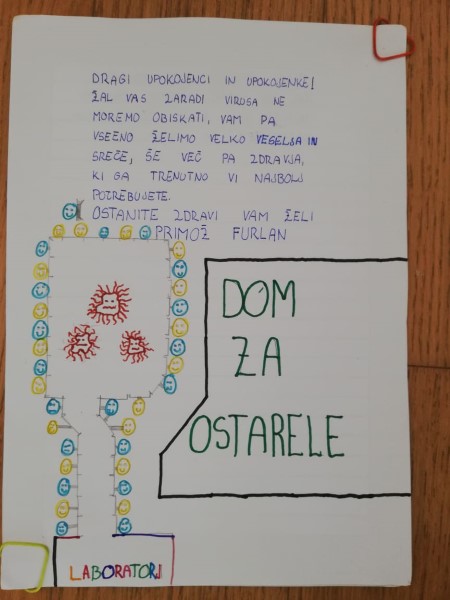 DRAGI UPOKOJENCI IN UPOKOJENKE!
ŽAL VAS ZARADI VIRUSA NE
MOREMO OBISKATI, VAM PA
VSEENO ŽELIMO VELKO VESELJA IN
SREČE, ŠE VEČ PA ZDRAVJA,
KI GA TRENUTNO VI NAJBOLJ
POTREBUJETE.
OSTANITE ZDRAVI VAM ŽELI
PRIMOŽ FURLAN
DOM
ZA
OSTARELE
LABORATORJ